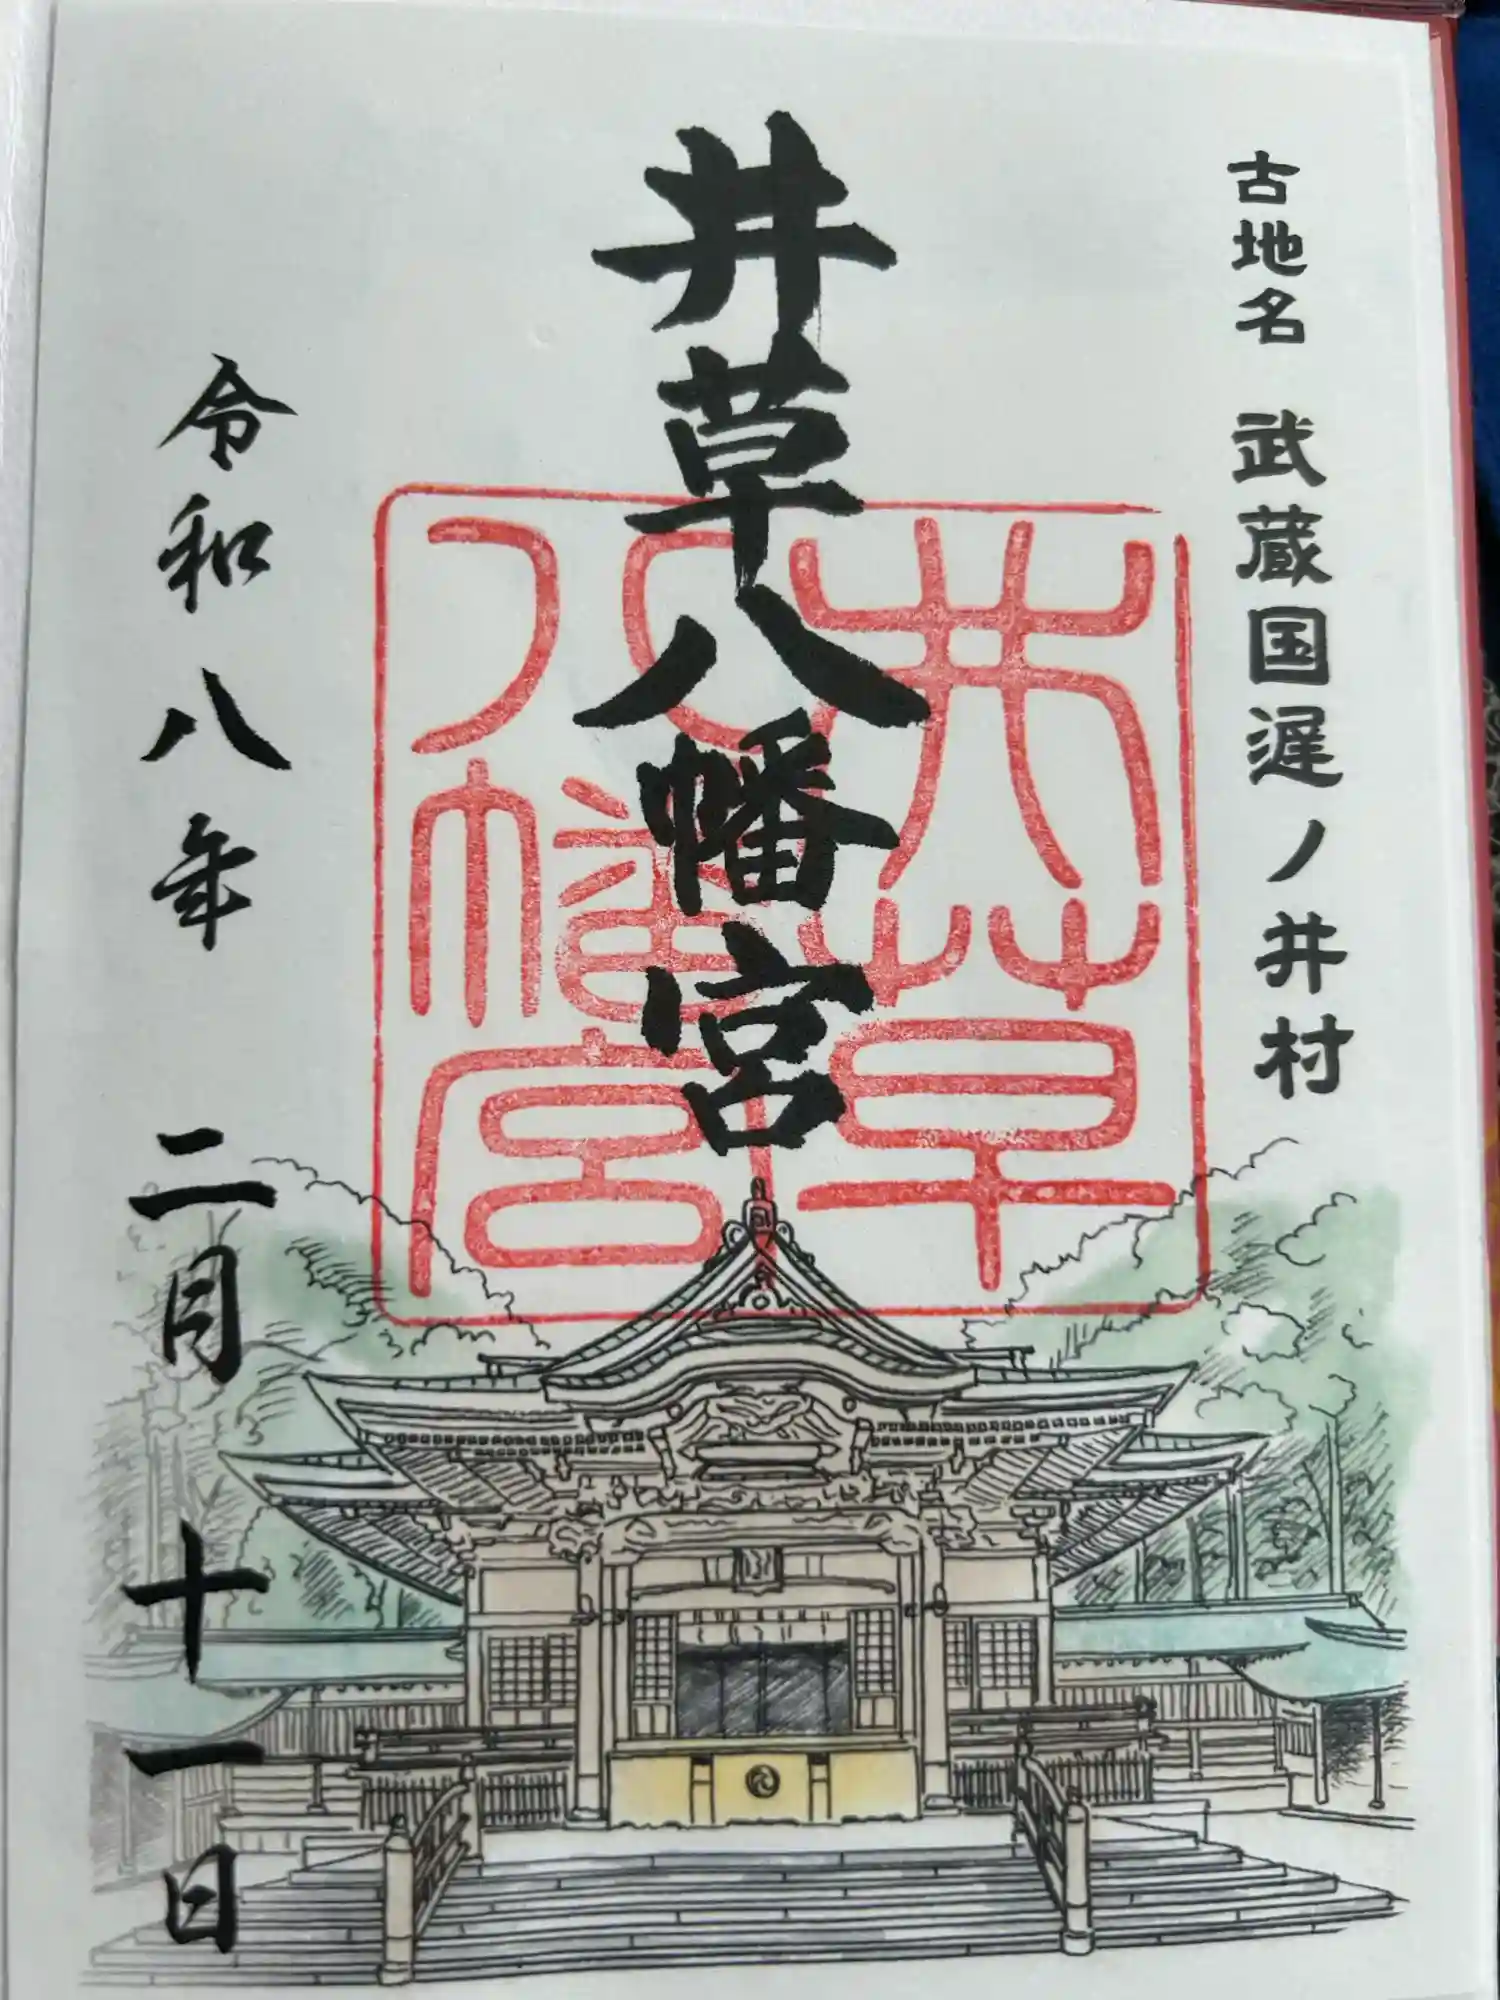 古地名 武蔵国遅ノ井村
井草八幡宮
井草
八幡宮
令和八年 二月十一日